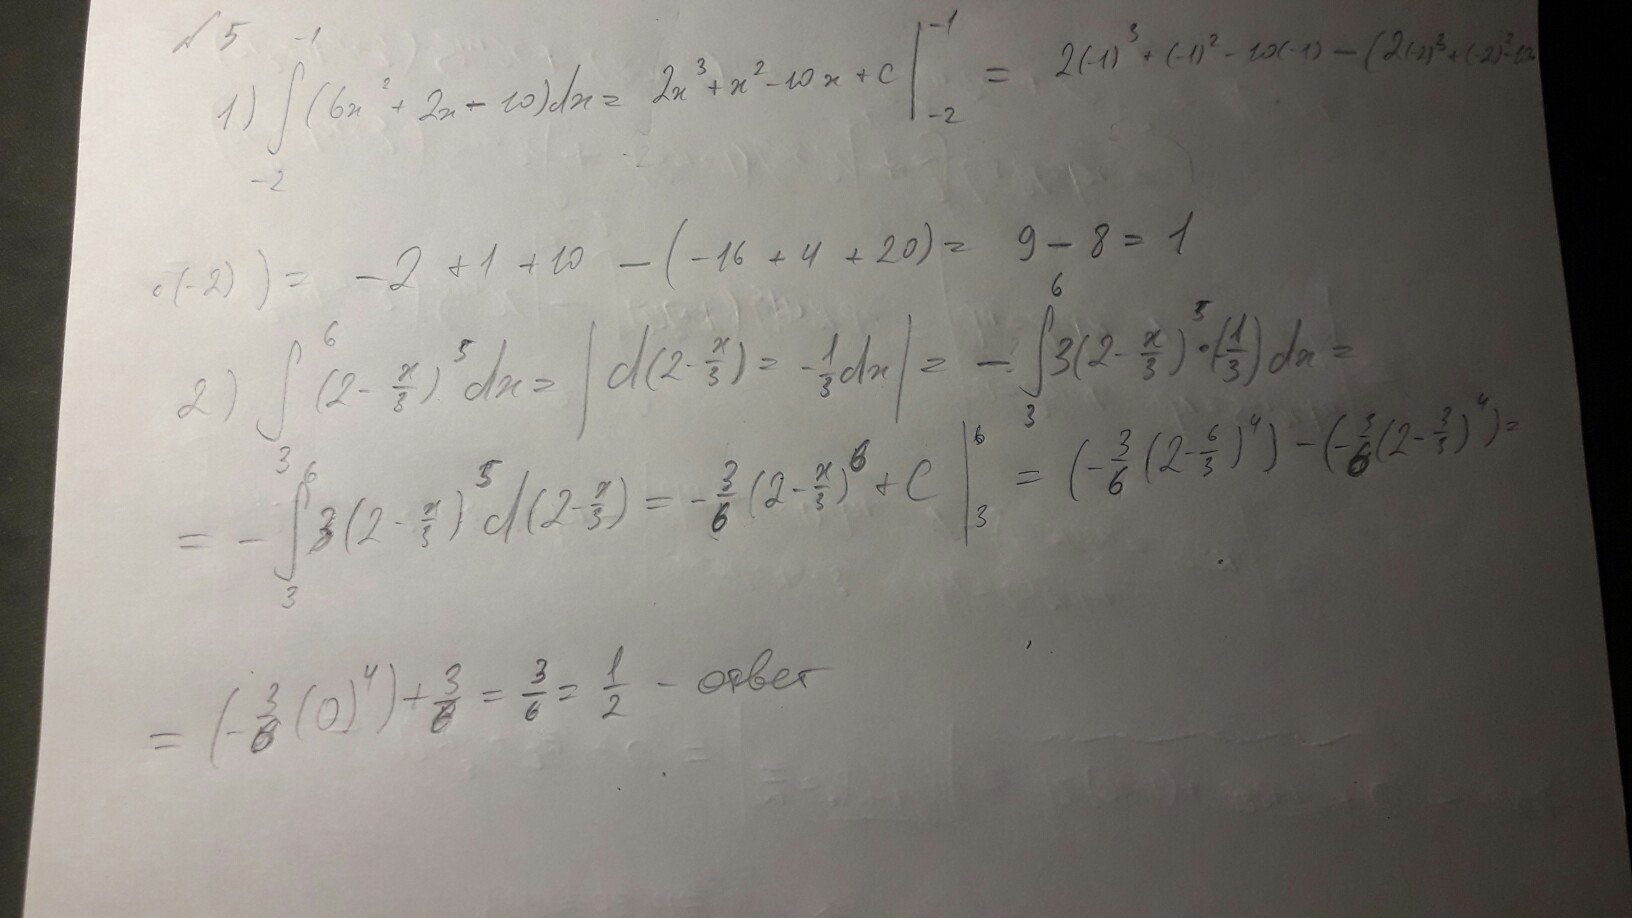 №5
1) ∫_{-2}^{-1} (6x² + 2x - 10)dx = 2x³ + x² - 10x + C |_{-2}^{-1} = 2(-1)³ + (-1)² - 10(-1) - (2(-2)³ + (-2)² - 10·
·(-2)) = -2 + 1 + 10 - (-16 + 4 + 20) = 9 - 8 = 1
2) ∫_3^6 (2 - x/3)⁵ dx = | d(2 - x/3) = -1/3 dx | = - ∫_3^6 3(2 - x/3)⁵ · (-1/3) dx =
= - ∫_3^6 3(2 - x/3)⁵ d(2 - x/3) = -3/6 (2 - x/3)⁶ + C |_3^6 = (-3/6 (2 - 6/3)⁴) - (-3/6 (2 - 3/3)⁴) =
= (-3/6 (0)⁴) + 3/6 = 3/6 = 1/2 - ответ